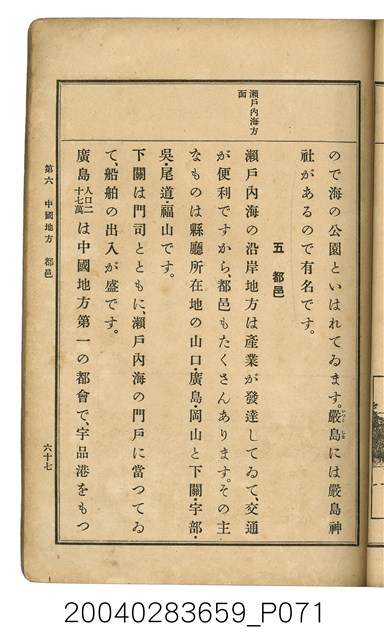 瀬戶內海方
面
ので海の公園といはれてゐます。嚴島には嚴島神
いつくしま
社があるので有名です。
五 都邑
瀬戶內海の沿岸地方は產業が發達してゐて、交通
が便利ですから、都邑もたくさんあります。その主
なものは縣廳所在地の山口・廣島・岡山と下關・宇部・
吳・尾道・福山です。
下關は門司とともに、瀬戶內海の門戶に當つてゐ
て、船舶の出入が盛です。
廣島人口二十七萬は中國地方第一の都會で、宇品港をもつ
第六 中國地方 都邑
六十七
20040283659_P071